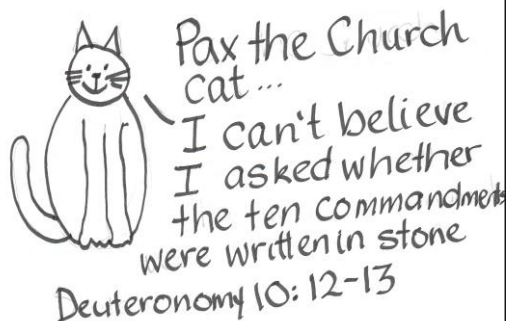 Pax the Church
cat...
I can't believe
I asked whether
the ten commandments
were written in stone
Deuteronomy 10:12-13